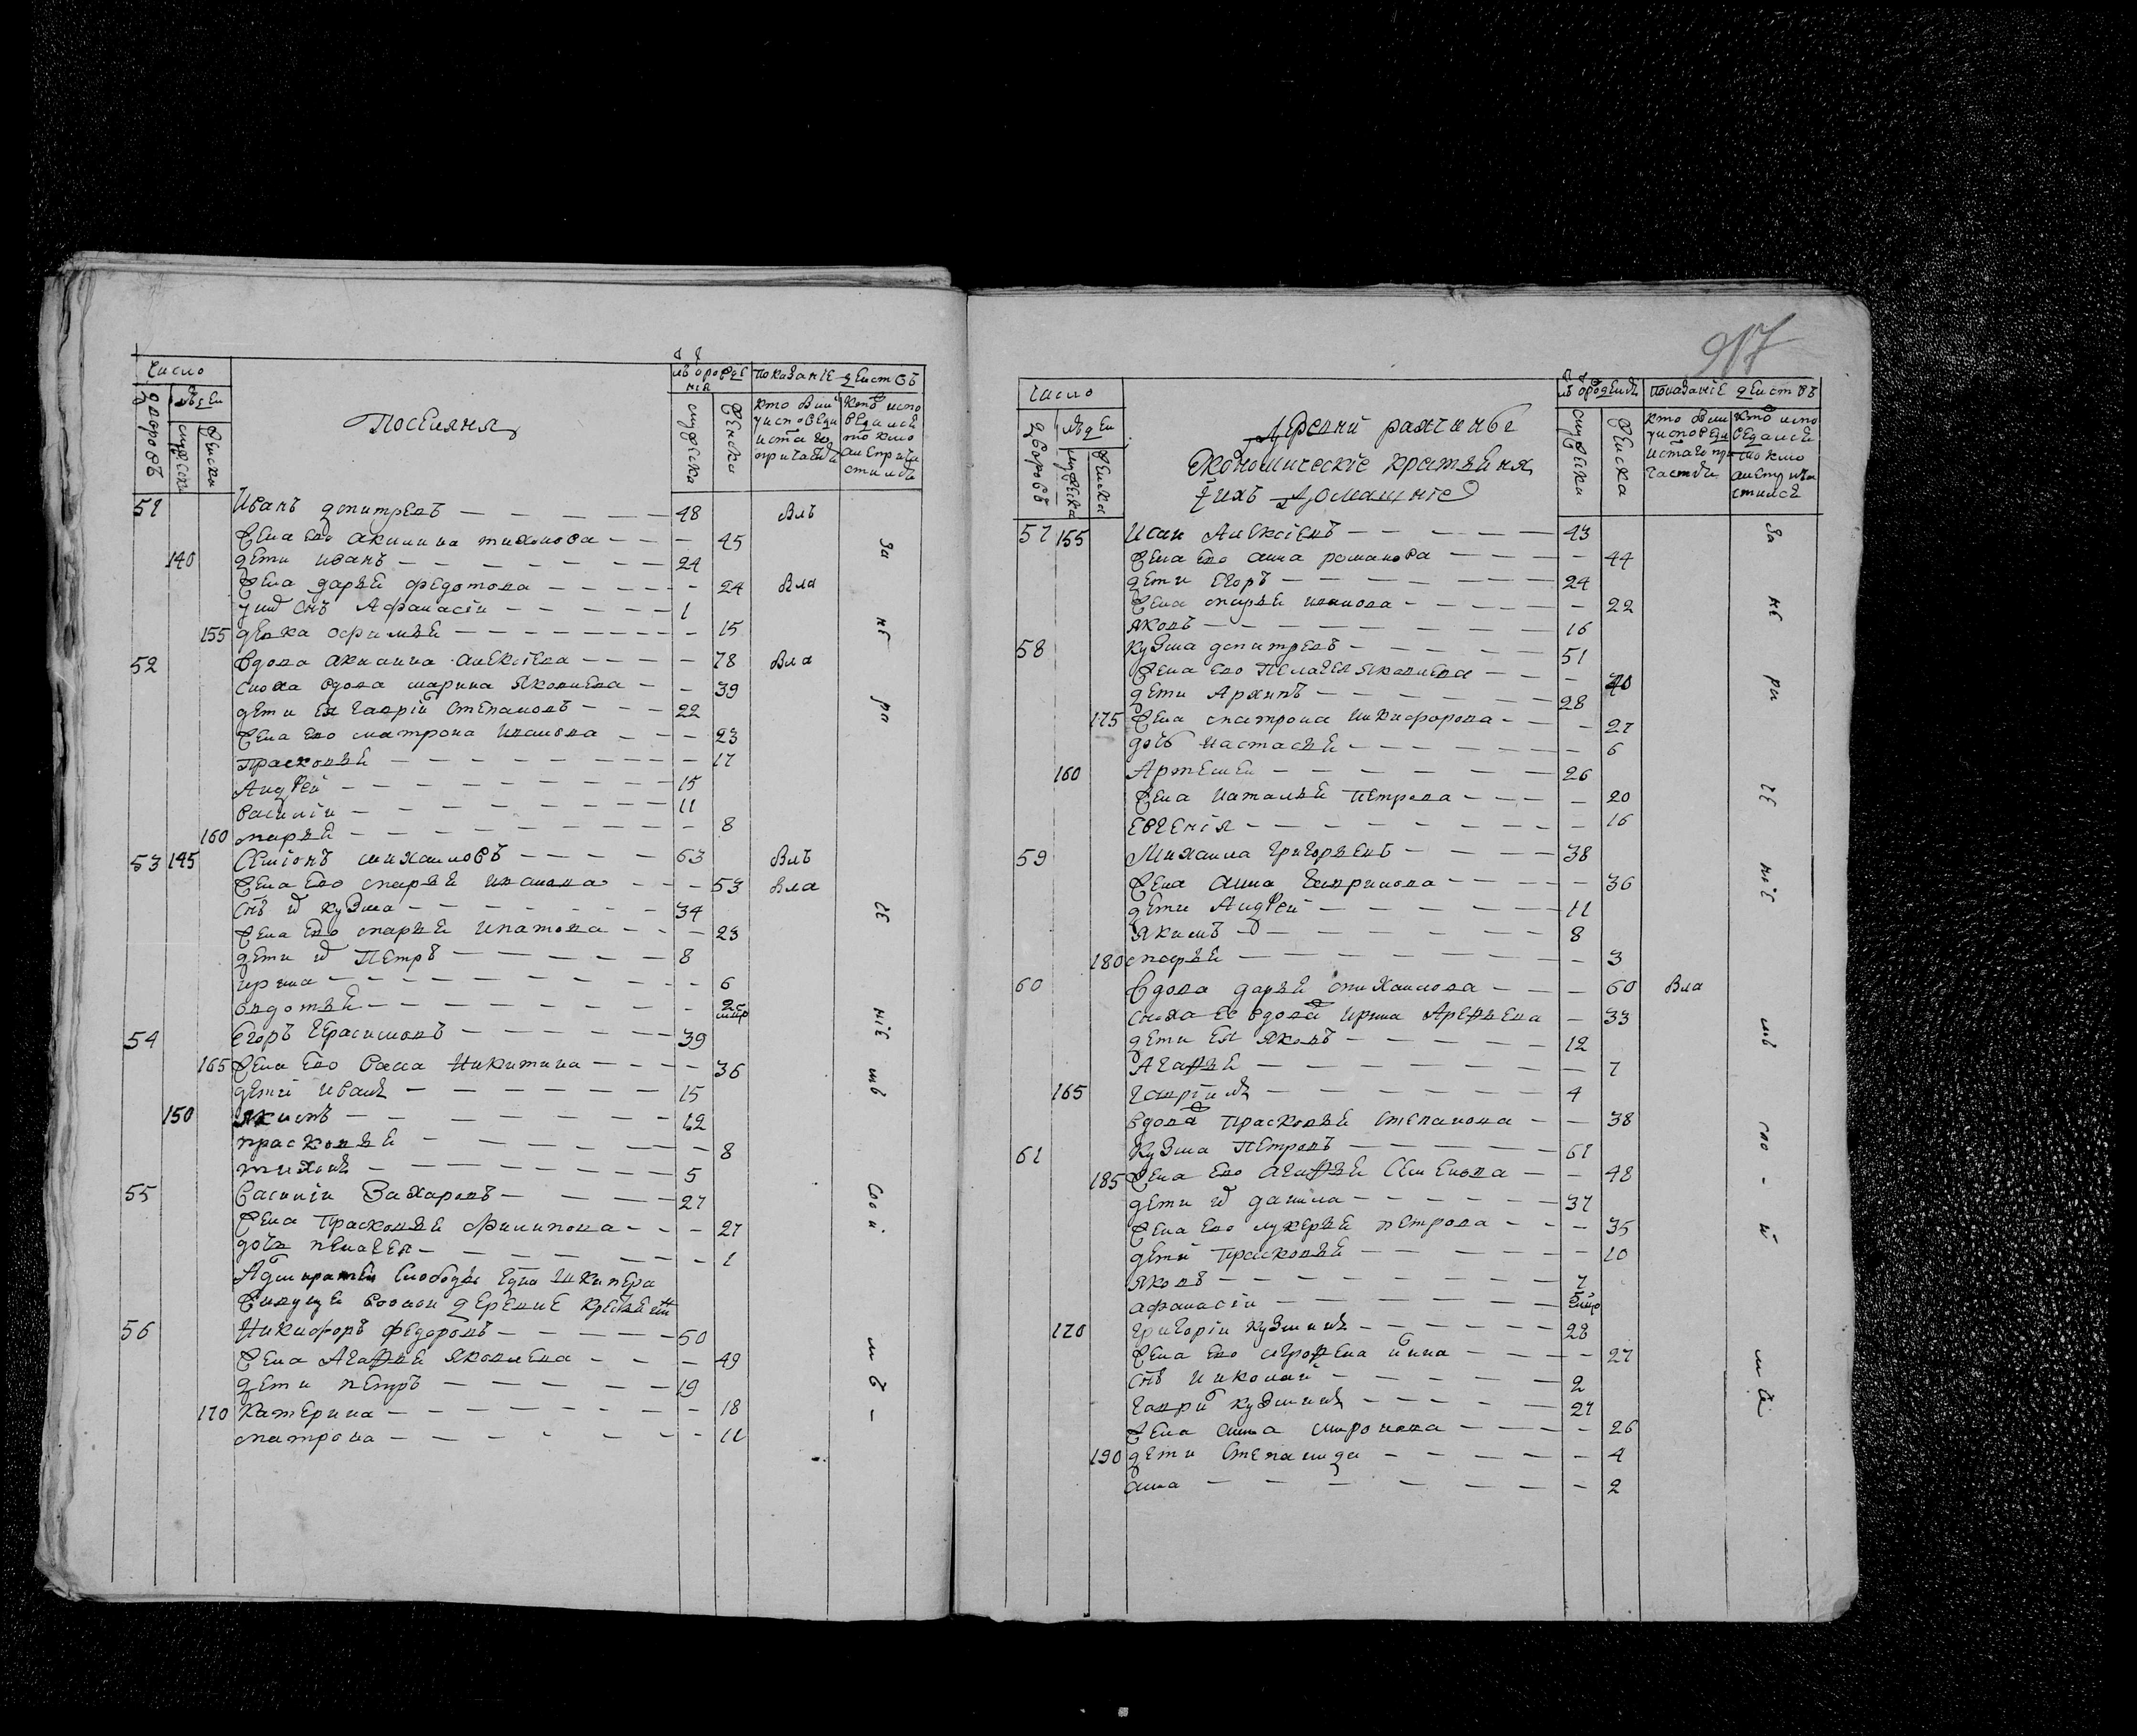 число
дворовъ
людей
мужеска
женска
Поселяня
лѣт от рожде
нія
мужеска
женска
показаніе действъ
кто былъ
у исповеди
и святаго
причастія
кто испо
ведался
токмо
а не прича
стился
51 Иванъ дмитревъ — 48 Былъ
жена ево акилина тихонова — 45
140 дети иванъ — 24
жена дарья федотова — 24 Была
у них снъ Афанасіи — 1
155 девка офимья — 15
52 вдова акилина алексѣева — 78 Была
сноха вдова марина яковлева — 39
дети ея гаврій степановъ — 22
жена ево матрона иванова — 23
прасковья — 17
Андрей — 15
василіи — 11
160 марья — 8
53 145 Семіонъ михаиловъ — 63 Былъ
жена ево марья иванова — 53 Была
снъ их кузма — 34
жена ево марья ипатова — 23
дети их Петръ — 8
ирина — 6
авдотья —
54 егоръ герасимовъ — 39
165 жена ево васса никитина — 36
дети иванъ — 15
150 якимъ — 12
прасковья — 8
тихонъ — 5
55 василіи захаровъ — 27
жена прасковья филипова — 27
дочь пелагея — 1
Адмиралтей слободы
живущей во оной деревне
56 Никифоръ федоровъ — 50
жена Агафья яковлева — 49
дети петръ — 19
170 катерина — 18
матрона — 11
за не ри че ніе мъ свои мъ
917
число
дворовъ
людей
мужеска
женска
Деревни рахчины
Экономическіе крестьяня
и ихъ домашніе
мужеска
женска
показаніе действъ
кто былъ
у исповеди
и святаго при
частія
кто испо
ведался
токмо
а не прича
стился
57 155 Исаи Алексіевъ — 43
жена ево анна романова — 44
дети егоръ — 24
жена марья иванова — 22
яковъ — 16
58 кузма дмитревъ — 51
жена ево Пелагея яковлева — 40
дети Архипъ — 28
175 жена матрона никифорова — 27
дочь настасья — 6
160 Артемеи — 26
жена наталья Петрова — 20
евгенія — 16
59 Михаила григорьевъ — 38
жена анна гаврилова — 36
дети Андрей — 11
якимъ — 8
180 марья — 3
60 вдова дарья михаилова — 60 Была
сноха ее вдова ирина Арефьева — 33
дети ея яковъ — 12
Агафья — 7
165 гаврілъ — 4
вдова Прасковья степанова — 38
61 кузма Петровъ — 61
185 жена ево агафья семенова — 48
дети их данила — 37
жена ево лукерья петрова — 35
дети прасковья — 10
яковъ — 7
афанасіи —
170 григоріи кузминъ — 28
жена ево — 27
снъ николай — 2
гаврій кузминъ — 27
жена анна миронова — 26
190 дети степанида — 4
анна — 2
за не ри че ніе